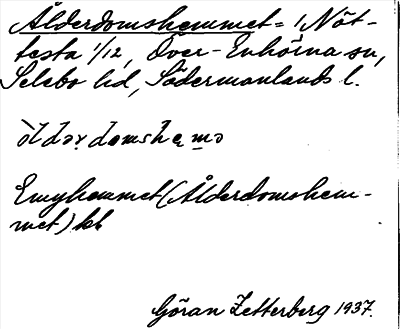 Ålderdomshemmet = 1 Nöt-
testa 1/12, Över-Enhörna sn,
Selebo hd, Södermanlands l.
òldərdomshemə
Emyhemmet (Ålderdomshem-
met) kb
Göran Zetterberg 1937.